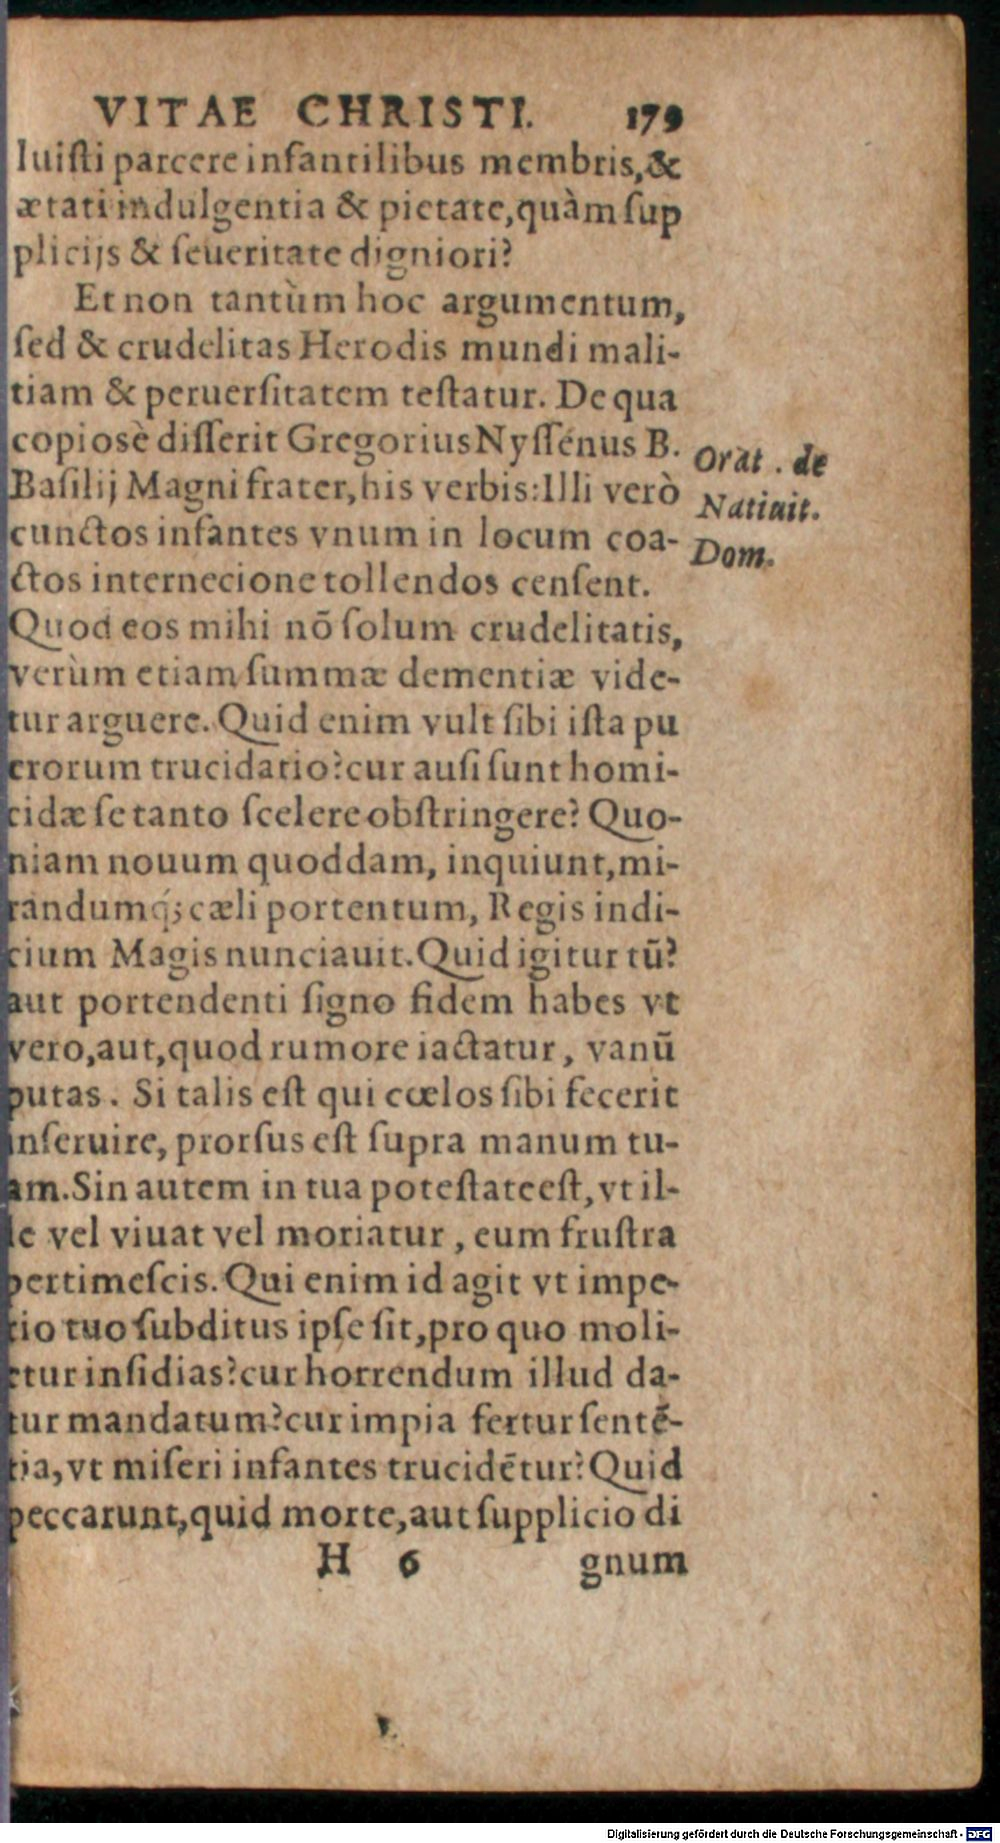 VITAE CHRISTI. 179
luiſti parcere infantilibus membris,&
ætati indulgentia & pietate,quàm ſup
plicijs & ſeueritate digniori?
Et non tantùm hoc argumentum,
ſed & crudelitas Herodis mundi mali-
tiam & peruerſitatem teſtatur. De qua
copioſè diſſerit Gregorius Nyſſenus B.
Baſilij Magni frater,his verbis:Illi verò
cunctos infantes vnum in locum coa-
ctos internecione tollendos cenſent.
Orat. de
Natiuit.
Dom.
Quod eos mihi nõ ſolum crudelitatis,
verùm etiam ſummæ dementiæ vide-
tur arguere. Quid enim vult ſibi iſta pu
erorum trucidatio?cur auſi ſunt homi-
cidæ ſe tanto ſcelere obſtringere? Quo-
niam nouum quoddam, inquiunt,mi-
randumq́; cæli portentum, Regis indi-
cium Magis nunciauit. Quid igitur tũ?
aut portendenti ſigno fidem habes vt
vero,aut,quod rumore iactatur, vanũ
putas. Si talis eſt qui cœlos ſibi fecerit
inſeruire, prorſus eſt ſupra manum tu-
am. Sin autem in tua poteſtate eſt, vt il-
le vel viuat vel moriatur, eum fruſtra
pertimeſcis. Qui enim id agit vt impe-
rio tuo ſubditus ipſe ſit,pro quo moli-
etur inſidias?cur horrendum illud da-
tur mandatum?cur impia fertur ſentẽ-
tia,vt miſeri infantes trucidẽtur? Quid
peccarunt,quid morte,aut ſupplicio di
H 6 gnum
Digitalisierung gefördert durch die Deutsche Forschungsgemeinschaft - DFG